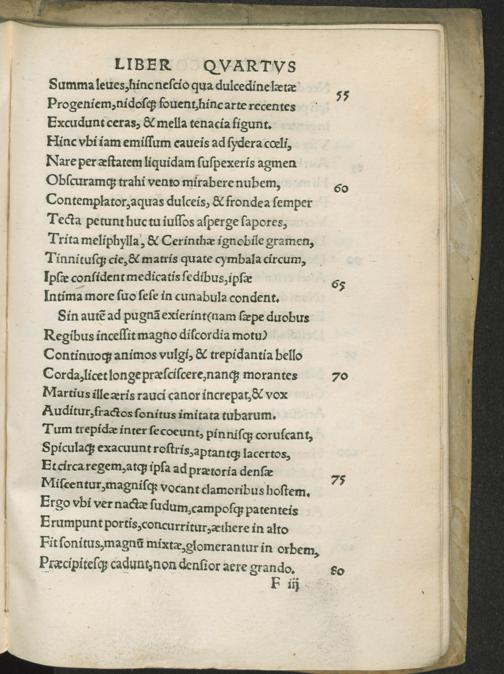 LIBER QVARTVS
Summa leues, hinc nescio qua dulcedine lætæ
55
Progeniem, nidosq; fouent, hinc arte recentes
Excudunt ceras, & mella tenacia figunt.
Hinc vbi iam emissum caueis ad sydera cœli,
Nare per æstatem liquidam suspexeris agmen
Obscuramq; trahi vento mirabere nubem,
60
Contemplator, aquas dulceis, & frondea semper
Tecta petunt huc tu iussos asperge sapores,
Trita meliphylla, & Cerinthæ ignobile gramen,
Tinnitusq; cie, & matris quate cymbala circum,
Ipsæ consident medicatis sedibus, ipsæ
65
Intima more suo sese in cunabula condent.
Sin autē ad pugnā exierint(nam sæpe duobus
Regibus incessit magno discordia motu)
Continuoq; animos vulgi, & trepidantia bello
Corda, licet longe præsciscere, nanq; morantes 70
Martius ille æris rauci canor increpat, & vox
Auditur, fractos sonitus imitata tubarum.
Tum trepidæ inter se coeunt, pinnisq; coruscant,
Spiculaq; exacuunt rostris, aptantq; lacertos,
Et circa regem, atq; ipsa ad prætoria densæ
75
Miscentur, magnisq; vocant clamoribus hostem.
Ergo vbi ver nactæ sudum, camposq; patenteis
Erumpunt portis, concurritur, æthere in alto
Fit sonitus, magnū mixtæ, glomerantur in orbem,
Præcipitesq; cadunt, non densior aere grando. 80
F iij